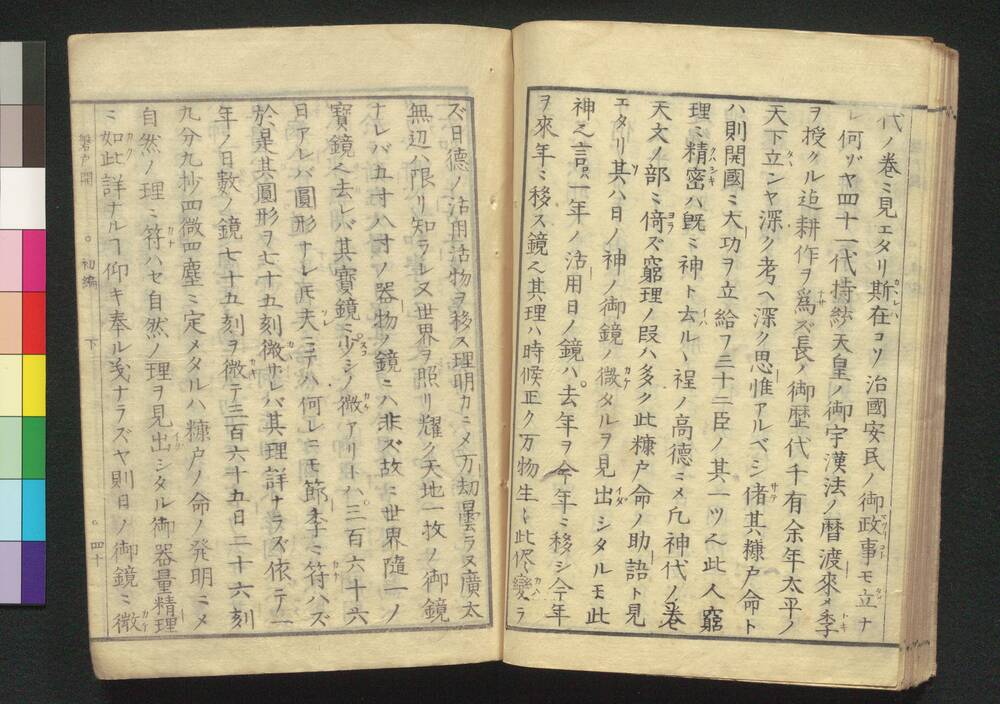 代ノ巻ニ見エタリ斯在コソ治國安民ノ御政事モ立ナ
何ゾヤ四十一代持統天皇ノ御宇漢法ノ暦渡來〆季
ヲ授クル迠耕作ヲ爲ズ長ノ御歴代千有余年太平ノ
天下立ンヤ深ク考ヘ深ク思惟アルベシ偖其糠戸命ト
ハ則開國ニ大功ヲ立給フ三十二臣ノ其一ツ也此人窮
理ニ精密ハ既ニ神ト云ル丶程ノ高德ニ〆凡神代ノ巻
天文ノ部ニ倚ズ窮理ノ段ハ多ク此糠戸命ノ助語ト見
エタリ其ハ日ノ神ノ御鏡ノ微タルヲ見出シタルモ此
神之言一年ノ活用日ノ鏡ハ去年ヲ今年ニ移シ今年
ヲ來年ニ移ス鏡也其理ハ時候正ク万物生〻此侭變ラ
ズ日德ノ活用活物ヲ移ス理明カニ〆万劫曇ラヌ廣太
無辺ハ限リ知ラレヌ世界ヲ照リ耀ク天地一枚ノ御鏡
ナレバ五寸八寸ノ器物ノ鏡ニハ非ズ故ニ世界隨一ノ
寶鏡也去レバ其寶鏡ニ少シノ微アリトハ三百六十六
日アレバ圓形ナレ𪜈夫ニテハ何レニモ節季ニ符ハズ
於是其圓形ヲ七十五刻微サレバ其理詳ナラズ依テ一
年ノ日數ノ鏡七十五刻ヲ微テ三百六十五日二十六刻
九分九抄四微四塵ニ定メタルハ糠戸ノ命ノ発明ニ〆
自然ノ理ニ符ハセ自然ノ理ヲ見出シタル御器量精理
ニ如此詳ナルヿ仰キ奉ル浅ナラズヤ則日ノ御鏡ニ微
磐戸開 初編 下 四十